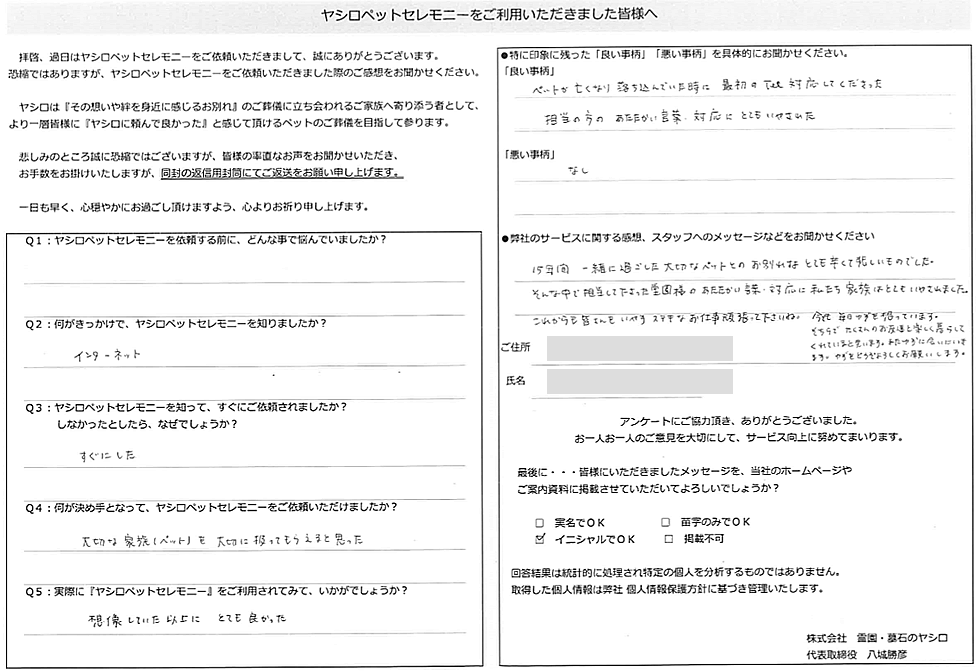 ヤシロペットセレモニーをご利用いただきました皆様へ
拝啓、過日はヤシロペットセレモニーをご依頼いただきまして、誠にありがとうございます。
恐縮ではありますが、ヤシロペットセレモニーをご依頼いただきました際のご感想をお聞かせください。
ヤシロは『その想いや絆を身近に感じるお別れ』のご葬儀に立ち会われるご家族へ寄り添う者として、
より一層皆様に『ヤシロに頼んで良かった』と感じて頂けるペットのご葬儀を目指して参ります。
悲しみのところ誠に恐縮ではございますが、皆様の率直なお声をお聞かせいただき、
お手数をお掛けいたしますが、同封の返信用封筒にてご返送をお願い申し上げます。
一日も早く、心穏やかにお過ごし頂けますよう、心よりお祈り申し上げます。
Q1：ヤシロペットセレモニーを依頼する前に、どんな事で悩んでいましたか？
Q2：何がきっかけで、ヤシロペットセレモニーを知りましたか？
インターネット
Q3：ヤシロペットセレモニーを知って、すぐにご依頼されましたか？
しなかったとしたら、なぜでしょうか？
すぐにした
Q4：何が決め手となって、ヤシロペットセレモニーをご依頼いただけましたか？
大切な家族(ペット)を大切に扱ってもらえると思った
Q5：実際に『ヤシロペットセレモニー』をご利用されてみて、いかがでしょうか？
想像していた以上に とても良かった
●特に印象に残った「良い事柄」「悪い事柄」を具体的にお聞かせください。
「良い事柄」
ペットが亡くなり落ち込んでいた時に 最初のTel対応してくださった
担当の方の あたたかい言葉・対応にとてもいやされた
「悪い事柄」
なし
●弊社のサービスに関する感想、スタッフへのメッセージなどをお聞かせください
15年間 一緒に過ごした大切なペットとのお別れはとても辛くて悲しいものでした。
そんな中で担当して下さった霊園様のあたたかい言葉・対応に私たち家族はとてもいやされました。
これからも皆さんをいやすステキなお仕事頑張って下さいね。
今も毎日ゆずを想っています。
そちらでたくさんのお友達と楽しく暮らして
くれていると思います。またゆずに会いにいき
ます。ゆずをどうぞよろしくお願いします。
ご住所
氏名
アンケートにご協力頂き、ありがとうございました。
お一人お一人のご意見を大切にして、サービス向上に努めてまいります。
最後に・・・皆様にいただきましたメッセージを、当社のホームページや
ご案内資料に掲載させていただいてよろしいでしょうか？
□ 実名でOK □ 苗字のみでOK
☑ イニシャルでOK □ 掲載不可
回答結果は統計的に処理され特定の個人を分析するものではありません。
取得した個人情報は弊社 個人情報保護方針に基づき管理いたします。
株式会社 霊園・墓石のヤシロ
代表取締役 八城勝彦